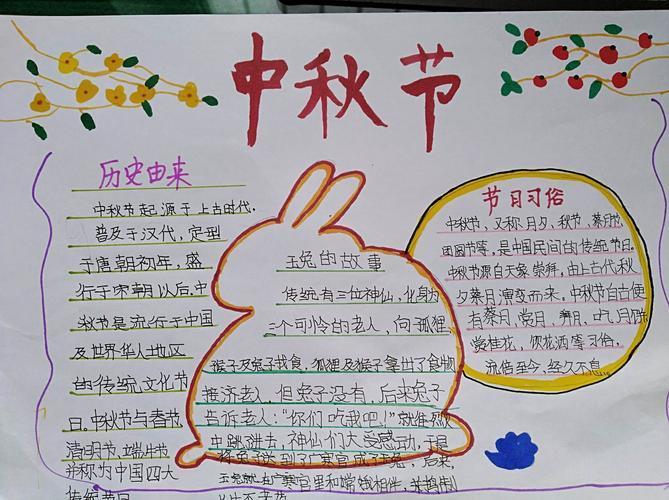 中秋节
历史由来
中秋节起源于上古时代,
普及于汉代,定型
于唐朝初年,盛
行于宋朝以后,中
秋节是流行于中国
及世界华人地区
的传统文化节
日。中秋节与春节
清明节、端午节
并称为中国四大
传统节日
玉兔的故事
传统有三位神仙,化身为
三个可怜的老人,向狐狸,
猴子及兔子求食,狐狸及猴子拿出了食物
接济老人,但兔子没有,后来兔子
告诉老人:“你们吃我吧!”就往烈火
中跳进去,神仙们大受感动,于是
将兔子送到了广寒宫成了玉兔,后来,
玉兔就在广寒宫里和嫦娥相伴,
节日习俗
中秋节,又称月夕、秋节、
团圆节等,是中国民间的传统节日。
中秋节源自天象崇拜,由上古代秋
夕祭月演变而来。中秋节自古便
有祭月、赏月、拜月、吃月饼
赏桂花、饮花酒等习俗,
流传至今,经久不息